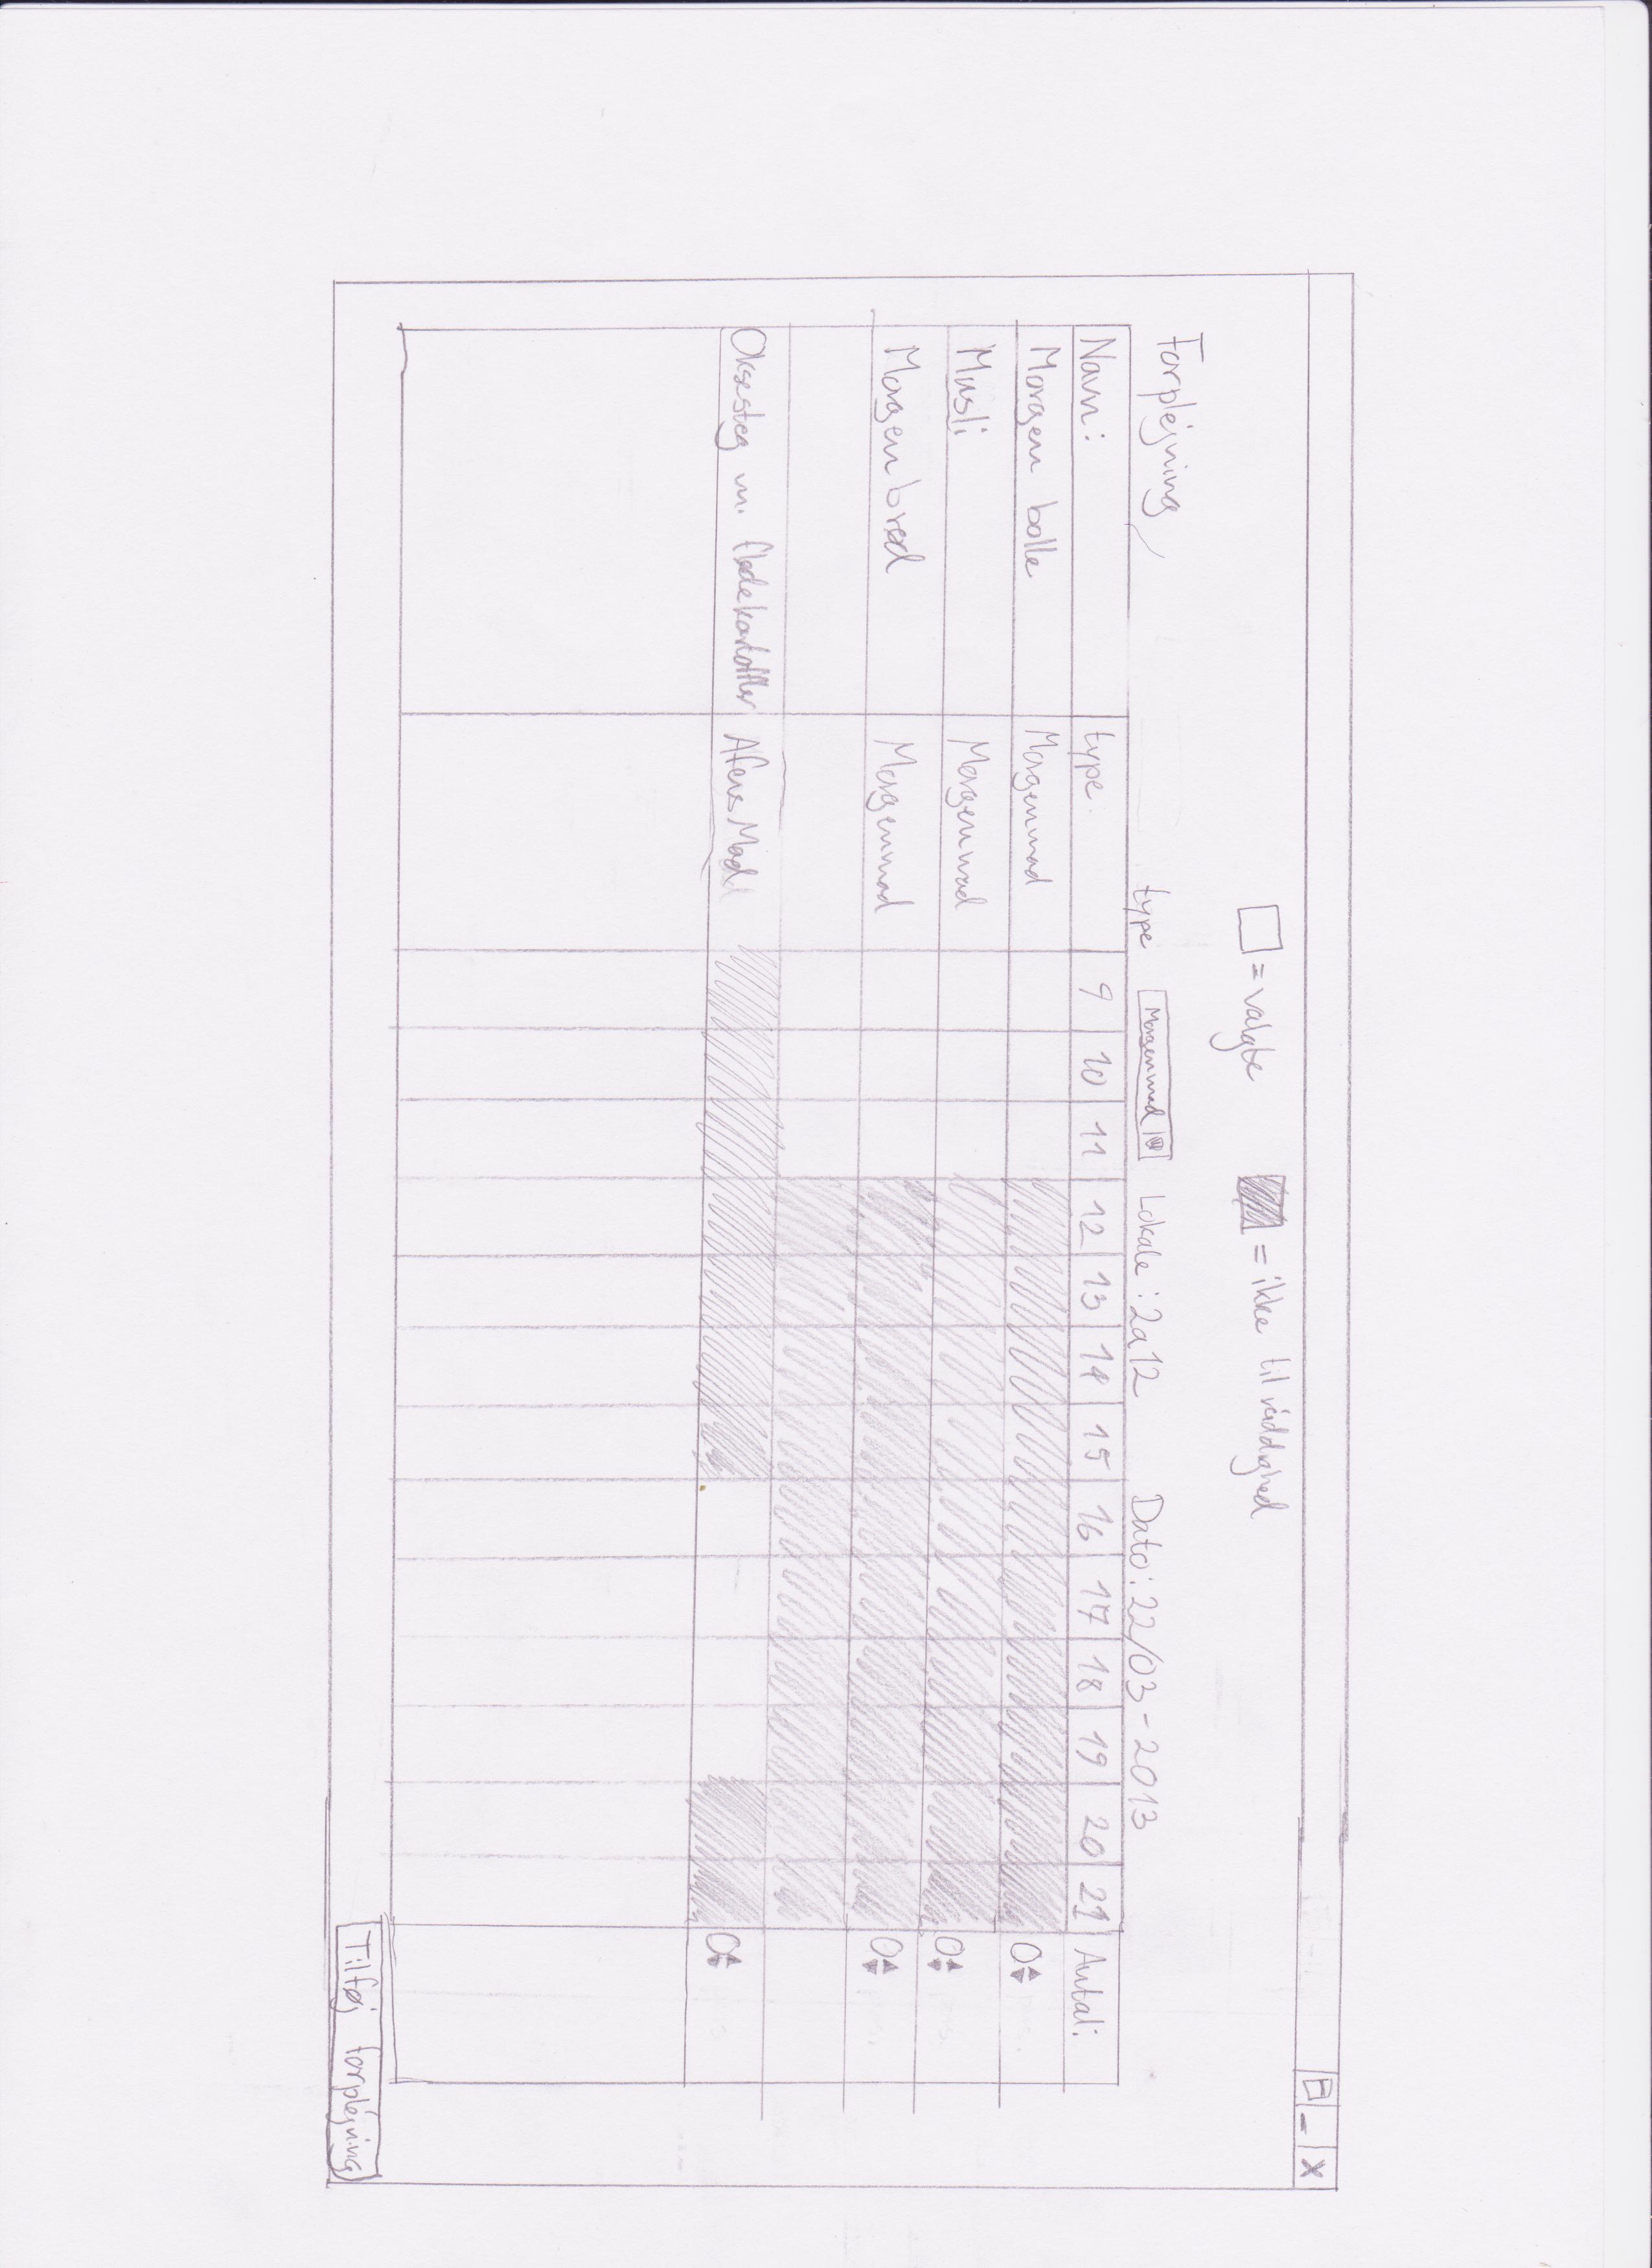 = valgte = ikke til rådighed
Forplejning
type Morgenmad Lokale : 2a12 Dato: 22/03 - 2013
Navn: type. 9 10 11 12 13 14 15 16 17 18 19 20 21 Antal:
Morgen bolle Morgenmad 0
Musli Morgenmad 0
Morgenbrød Morgenmad 0
Oksesteg m. flødekartofler Afens Mad 0
Tilføj forplejning